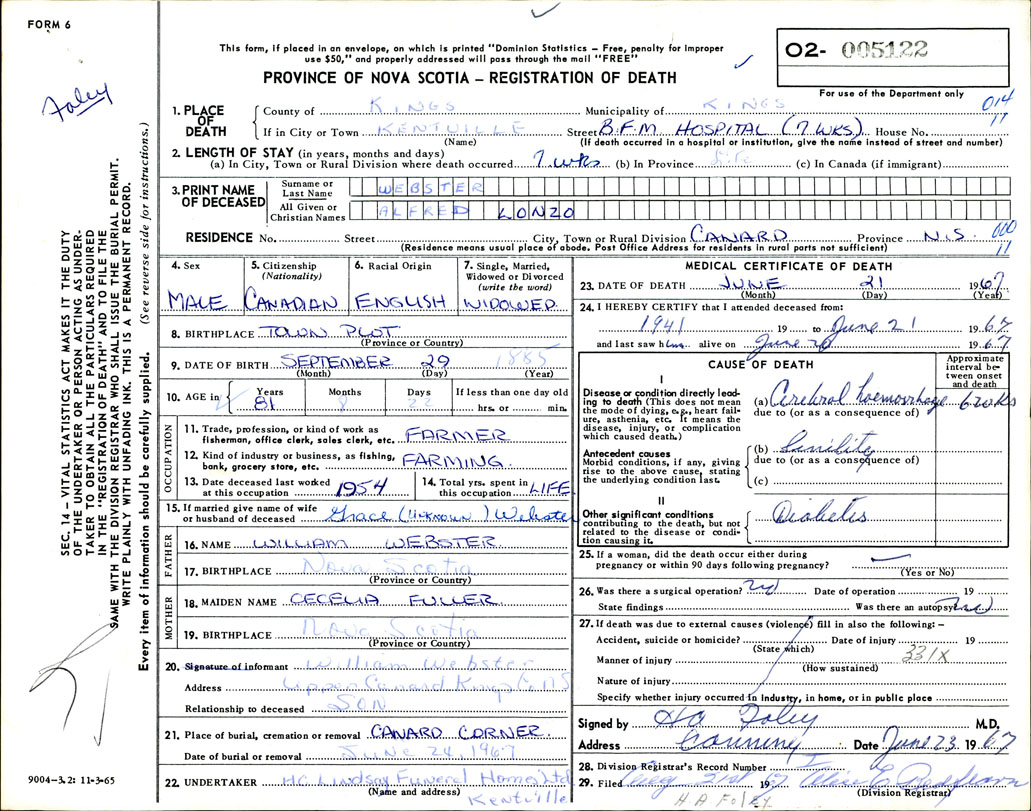 FORM 6
This form, if placed in an envelope, on which is printed "Dominion Statistics – Free, penalty for improper
use $50," and properly addressed will pass through the mail "FREE"
PROVINCE OF NOVA SCOTIA – REGISTRATION OF DEATH
O2- 005122
For use of the Department only
Foley
014
11
1. PLACE OF DEATH
County of KINGS Municipality of KINGS
If in City or Town KENTVILLE Street B.F.M HOSPITAL (7 WKS) House No.
(Name) (If death occurred in a hospital or institution, give the name instead of street and number)
2. LENGTH OF STAY (in years, months and days)
(a) In City, Town or Rural Division where death occurred 7 wks (b) In Province life (c) In Canada (if immigrant)
3. PRINT NAME OF DECEASED
Surname or Last Name WEBSTER
All Given or Christian Names ALFRED LONZO
RESIDENCE No. Street City, Town or Rural Division CANARD Province N.S.
000
11
(Residence means usual place of abode. Post Office Address for residents in rural parts not sufficient)
4. Sex
MALE
5. Citizenship
(Nationality)
CANADIAN
6. Racial Origin
ENGLISH
7. Single, Married,
Widowed or Divorced
(write the word)
WIDOWED
8. BIRTHPLACE TOWN PLOT
(Province or Country)
9. DATE OF BIRTH SEPTEMBER 29 1885
(Month) (Day) (Year)
10. AGE in Years Months Days If less than one day old
81 8 22 hrs. or min.
OCCUPATION
11. Trade, profession, or kind of work as
fisherman, office clerk, sales clerk, etc. FARMER
12. Kind of industry or business, as fishing,
bank, grocery store, etc. FARMING.
13. Date deceased last worked
at this occupation 1954
14. Total yrs. spent in
this occupation LIFE
15. If married give name of wife
or husband of deceased Grace (Unknown) Webster
FATHER
16. NAME WILLIAM WEBSTER
17. BIRTHPLACE Nova Scotia
(Province or Country)
MOTHER
18. MAIDEN NAME CECELIA FULLER
19. BIRTHPLACE Nova Scotia
(Province or Country)
20. Signature of informant William Webster
Address Upper Canard Kings Co NS
Relationship to deceased SON
21. Place of burial, cremation or removal CANARD CORNER.
Date of burial or removal JUNE 24, 1967
22. UNDERTAKER H.C. Lindsay Funeral Home Ltd
(Name and address)
Kentville
MEDICAL CERTIFICATE OF DEATH
23. DATE OF DEATH JUNE 21 1967
(Month) (Day) (Year)
24. I HEREBY CERTIFY that I attended deceased from:
1941 19 to June 21 1967
and last saw him alive on June 20 1967
CAUSE OF DEATH
Approximate
interval be-
tween onset
and death
I
Disease or condition directly lead-
ing to death (This does not mean
the mode of dying, e.g., heart fail-
ure, asthenia, etc. It means the
disease, injury, or complication
which caused death.)
(a) Cerebral haemorrhage 6 weeks
due to (or as a consequence of)
Antecedent causes
Morbid conditions, if any, giving
rise to the above cause, stating
the underlying condition last.
(b) Senility
due to (or as a consequence of)
(c)
II
Other significant conditions
contributing to the death, but not
related to the disease or condi-
tion causing it.
Diabetis
25. If a woman, did the death occur either during
pregnancy or within 90 days following pregnancy?
(Yes or No)
26. Was there a surgical operation? no Date of operation 19
State findings Was there an autopsy? no
27. If death was due to external causes (violence) fill in also the following: –
Accident, suicide or homicide? Date of injury 19
(State which)
331X
Manner of injury
(How sustained)
Nature of injury
Specify whether injury occurred in industry, in home, or in public place
Signed by HA Foley M.D.
Address Canning Date June 23 1967
28. Division Registrar's Record Number
29. Filed Aug 21st 1967
(Division Registrar)
H A FOLEY
SEC. 14 – VITAL STATISTICS ACT MAKES IT THE DUTY
OF THE UNDERTAKER OR PERSON ACTING AS UNDER-
TAKER TO OBTAIN ALL THE PARTICULARS REQUIRED
IN THE "REGISTRATION OF DEATH" AND TO FILE THE
SAME WITH THE DIVISION REGISTRAR WHO SHALL ISSUE THE BURIAL PERMIT.
WRITE PLAINLY WITH UNFADING INK. THIS IS A PERMANENT RECORD.
Every item of information should be carefully supplied. (See reverse side for instructions.)
9004-3.2: 11-3-65